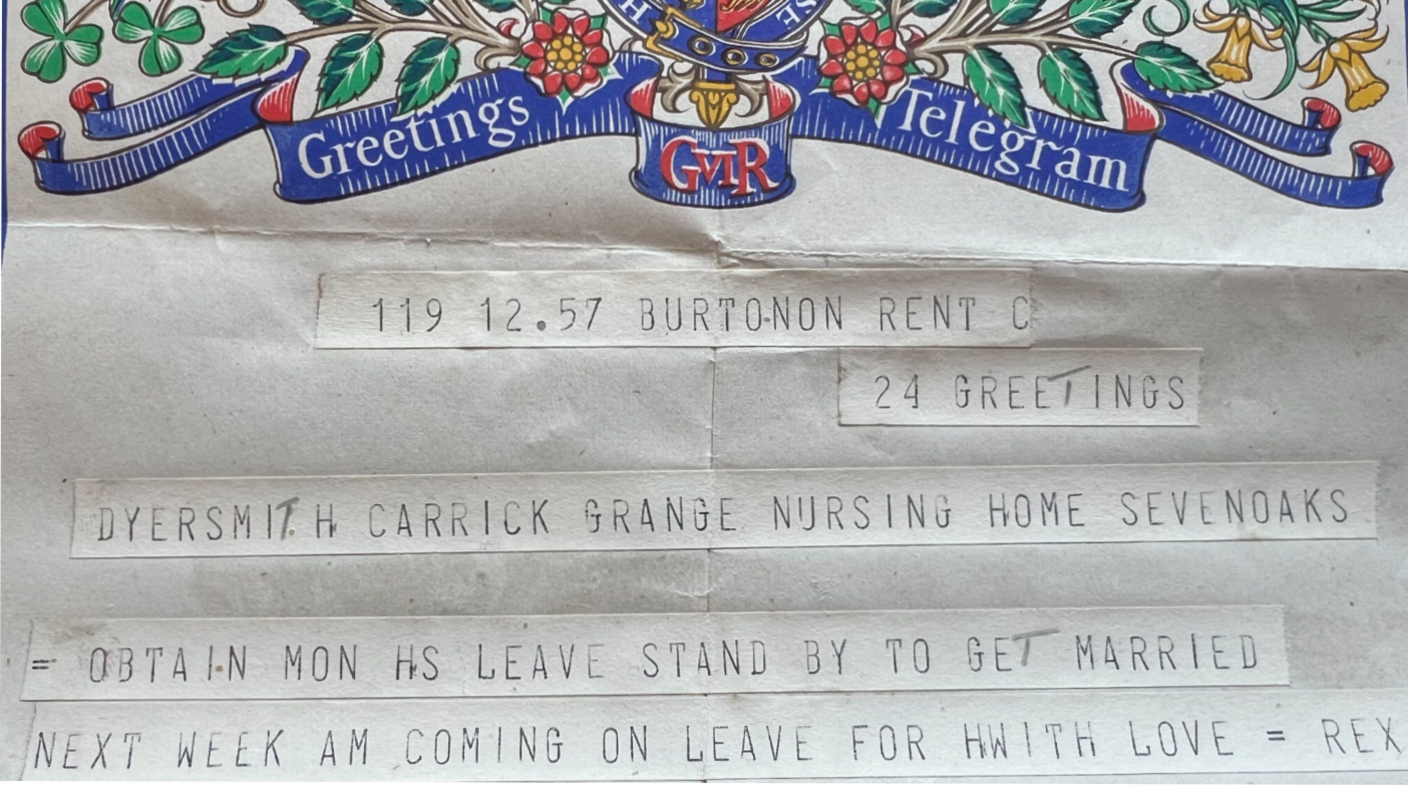 H SE
Greetings Telegram
GVIR
119 12.57 BURTO-NON RENT C
24 GREETINGS
DYERSMIT.H CARRICK GRANGE NURSING HOME SEVENOAKS
= OBTAIN MON HS LEAVE STAND BY TO GET MARRIED
NEXT WEEK AM COMING ON LEAVE FOR HWITH LOVE = REX